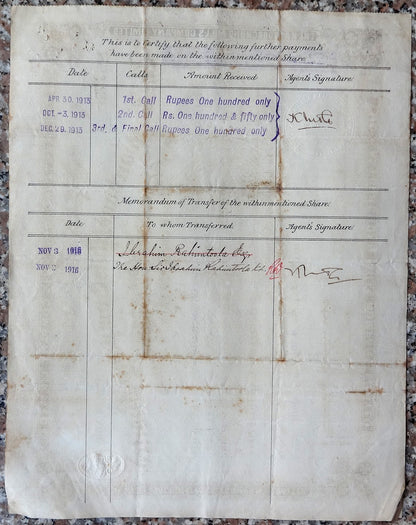 This is to Certify that the following further payments
have been made on the withinmentioned Share.
Date Calls Amount Received Agent's Signature
APR 30. 1913 1st. Call Rupees One hundred only
OCT -3. 1913 2nd. Call Rs. One hundred & fifty only
DEC 29. 1913 3rd. & Final Call Rupees One hundred only
Memorandum of Transfer of the withinmentioned Share.
Date To whom Transferred. Agent's Signature
NOV 3 1916 Ibrahim Rahimtoola Esq.
NOV 1916 The Hon. Sir Ibrahim Rahimtoola Kt.